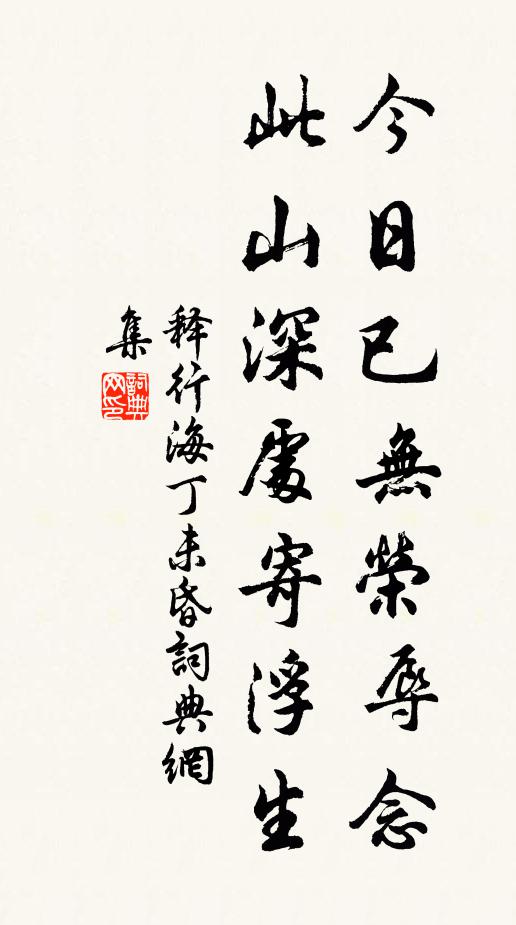 今日已無榮辱念
此山深處寄浮生
释行海丁未昏詞典網
集
詞典網印